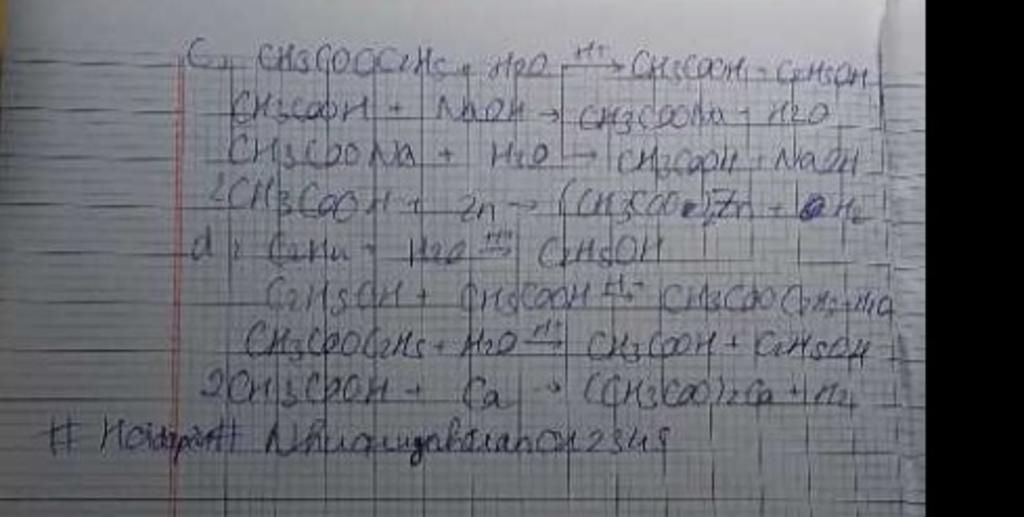 C, CH3COOC2H5 + H2O H+→ CH3COOH + C2H5OH
CH3COOH + NaOH → CH3COONa + H2O
CH3COONa + H2O → CH3COOH + NaOH
2CH3COOH + Zn → (CH3COO)2Zn + H2
d, C2H4 + H2O H+→ C2H5OH
C2H5OH + CH3COOH → CH3COOC2H5 + H2O
CH3COOC2H5 + H2O H+→ CH3COOH + C2H5OH
2CH3COOH + Ca → (CH3COO)2Ca + H2
# Hoidap247#